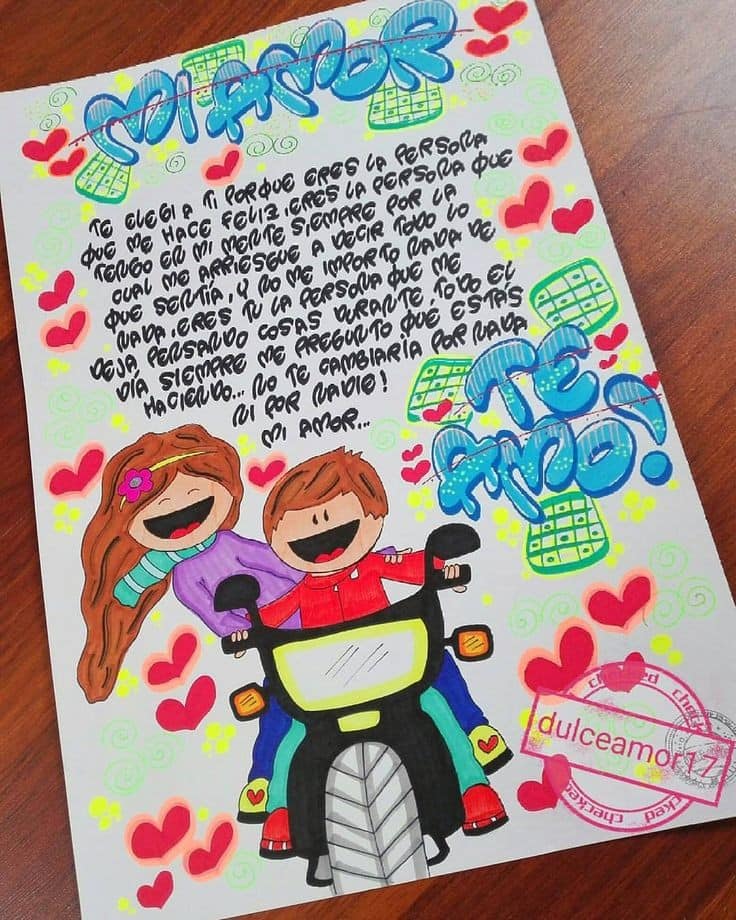 MI AMOR
TE ELEGI A TI PORQUE ERES LA PERSONA
QUE ME HACE FELIZ, ERES LA PERSONA QUE
TENGO EN MI MENTE SIEMPRE POR LA
CUAL ME ARRIESGUE A DECIR TODO LO
QUE SENTÍA, Y NO ME IMPORTO NADA DE
NADA, ERES TU LA PERSONA QUE ME
DEJA PENSANDO COSAS DURANTE TODO EL
DÍA SIEMPRE ME PREGUNTO QUE ESTÁS
HACIENDO... NO TE CAMBIARÍA POR NADA
NI POR NADIE!
MI AMOR...
TE
AMO!
checked checked
dulceamor17
checked